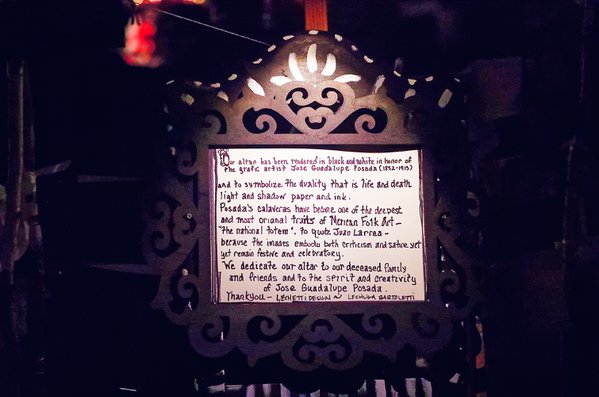 Our altar has been rendered in black and white in honor of
the grafic artist Jose Guadalupe Posada (1852-1913)
and to symbolize the duality that is life and death
light and shadow paper and ink.
Posada's calaveras have become one of the deepest
and most original traits of Mexican Folk Art—
"the national totem", to quote Juan Larrea—
because the images embody both criticism and satire yet
yet remain festive and celebratory.
We dedicate our altar to our deceased family
and friends and to the spirit and creativity
of Jose Guadalupe Posada.
Thank you— LECHETTI DESIGN LECHUGA BARTOLETTI